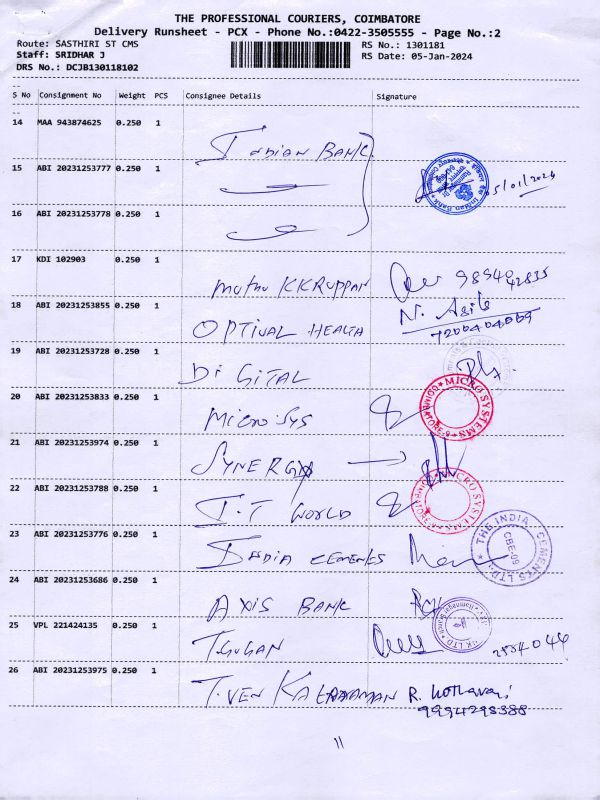 THE PROFESSIONAL COURIERS, COIMBATORE
Delivery Runsheet - PCX - Phone No.:0422-3505555 - Page No.:2
Route: SASTHIRI ST CMS RS No.: 1301181
Staff: SRIDHAR J RS Date: 05-Jan-2024
DRS No.: DCJB130118102
S No Consignment No Weight PCS Consignee Details Signature
14 MAA 943874625 0.250 1 Indian Bank
15 ABI 20231253777 0.250 1 5/01/2024
16 ABI 20231253778 0.250 1
17 KDI 102903 0.250 1 Muthu KKRuppan
18 ABI 20231253855 0.250 1 OPTIVAL HEALTH N.
7200404069
19 ABI 20231253728 0.250 1 DIGITAL
20 ABI 20231253833 0.250 1 MicroSys MICRO SYSTEMS
21 ABI 20231253974 0.250 1 SYNERGY
22 ABI 20231253788 0.250 1 I.T WORLD MICRO SYSTEMS
23 ABI 20231253776 0.250 1 India cements THE INDIA CEMENTS LTD. CBE-09
24 ABI 20231253686 0.250 1 AXIS BANK
25 VPL 221424135 0.250 1
26 ABI 20231253975 0.250 1 T. VENKATARAMAN R.
9994298388
11